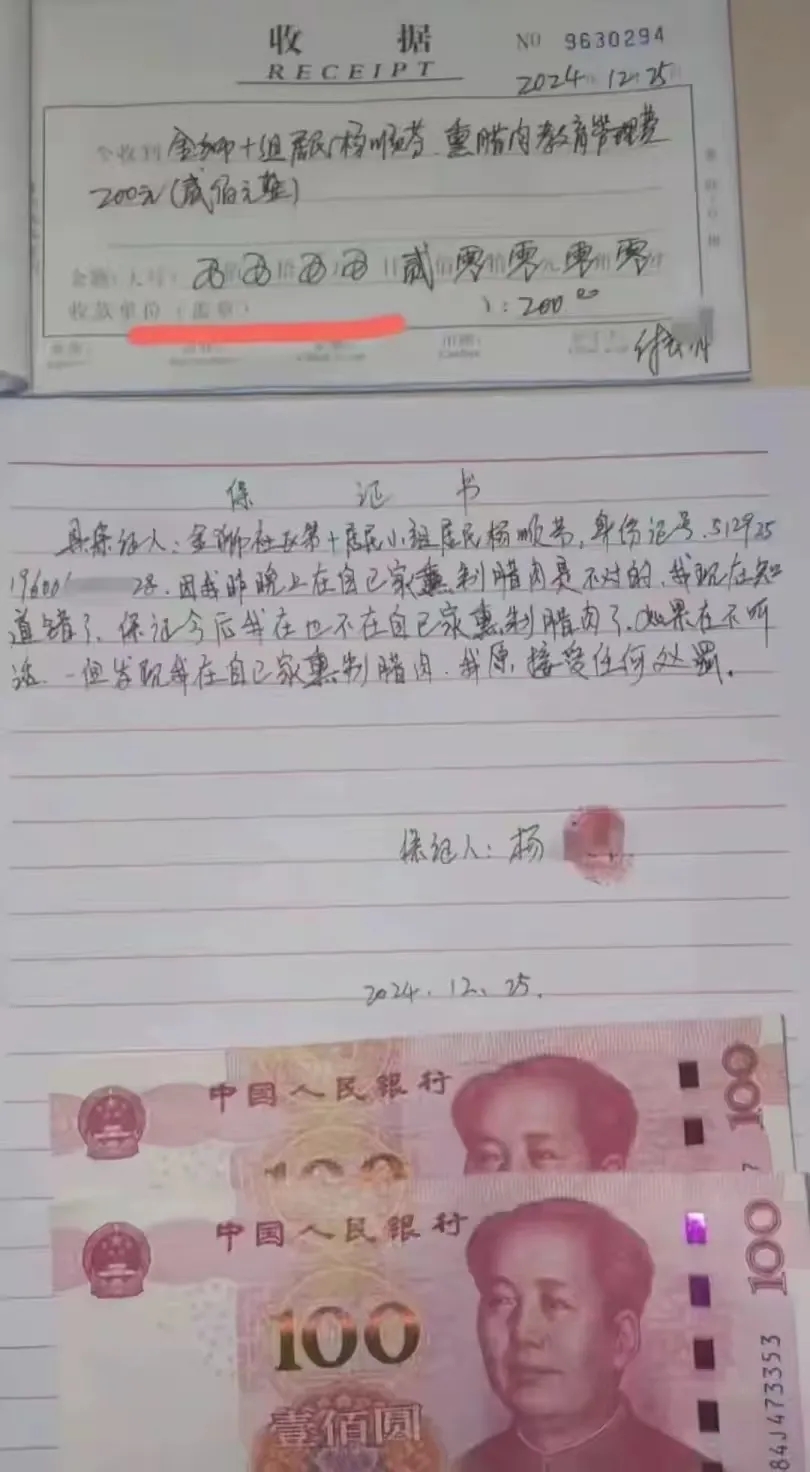 收 据
RECEIPT
NO 9630294
2024 12.25
今收到 金狮十组居民杨顺芳 熏腊肉教育管理费
200元(贰佰元整)
贰 零 零 零 零
收款单位(盖章)
200.00
保 证 书
具保证人:金狮社区第十居民小组居民杨顺芳,身份证号.512925
19600/ 28.因我昨晚上在自己家熏制腊肉是不对的,我现在知
道错了.保证今后我在也不在自己家熏制腊肉了.如果在不听
话.一但发现我在自己家熏制腊肉.我原接受任何处罚.
保证人:杨
2024.12.25.
中国人民银行
100
100
中国人民银行
100
100
壹佰圆
84J473353